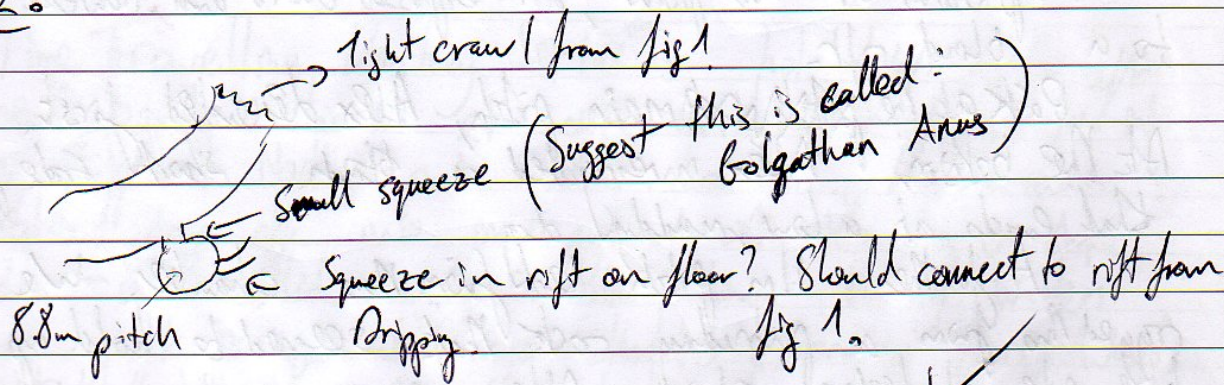 Tight crawl from fig 1.
Small squeeze (Suggest this is called:
Golgathan Anus)
Squeeze in rift on floor? Should connect to rift from
8.8m pitch Dripping. fig 1.